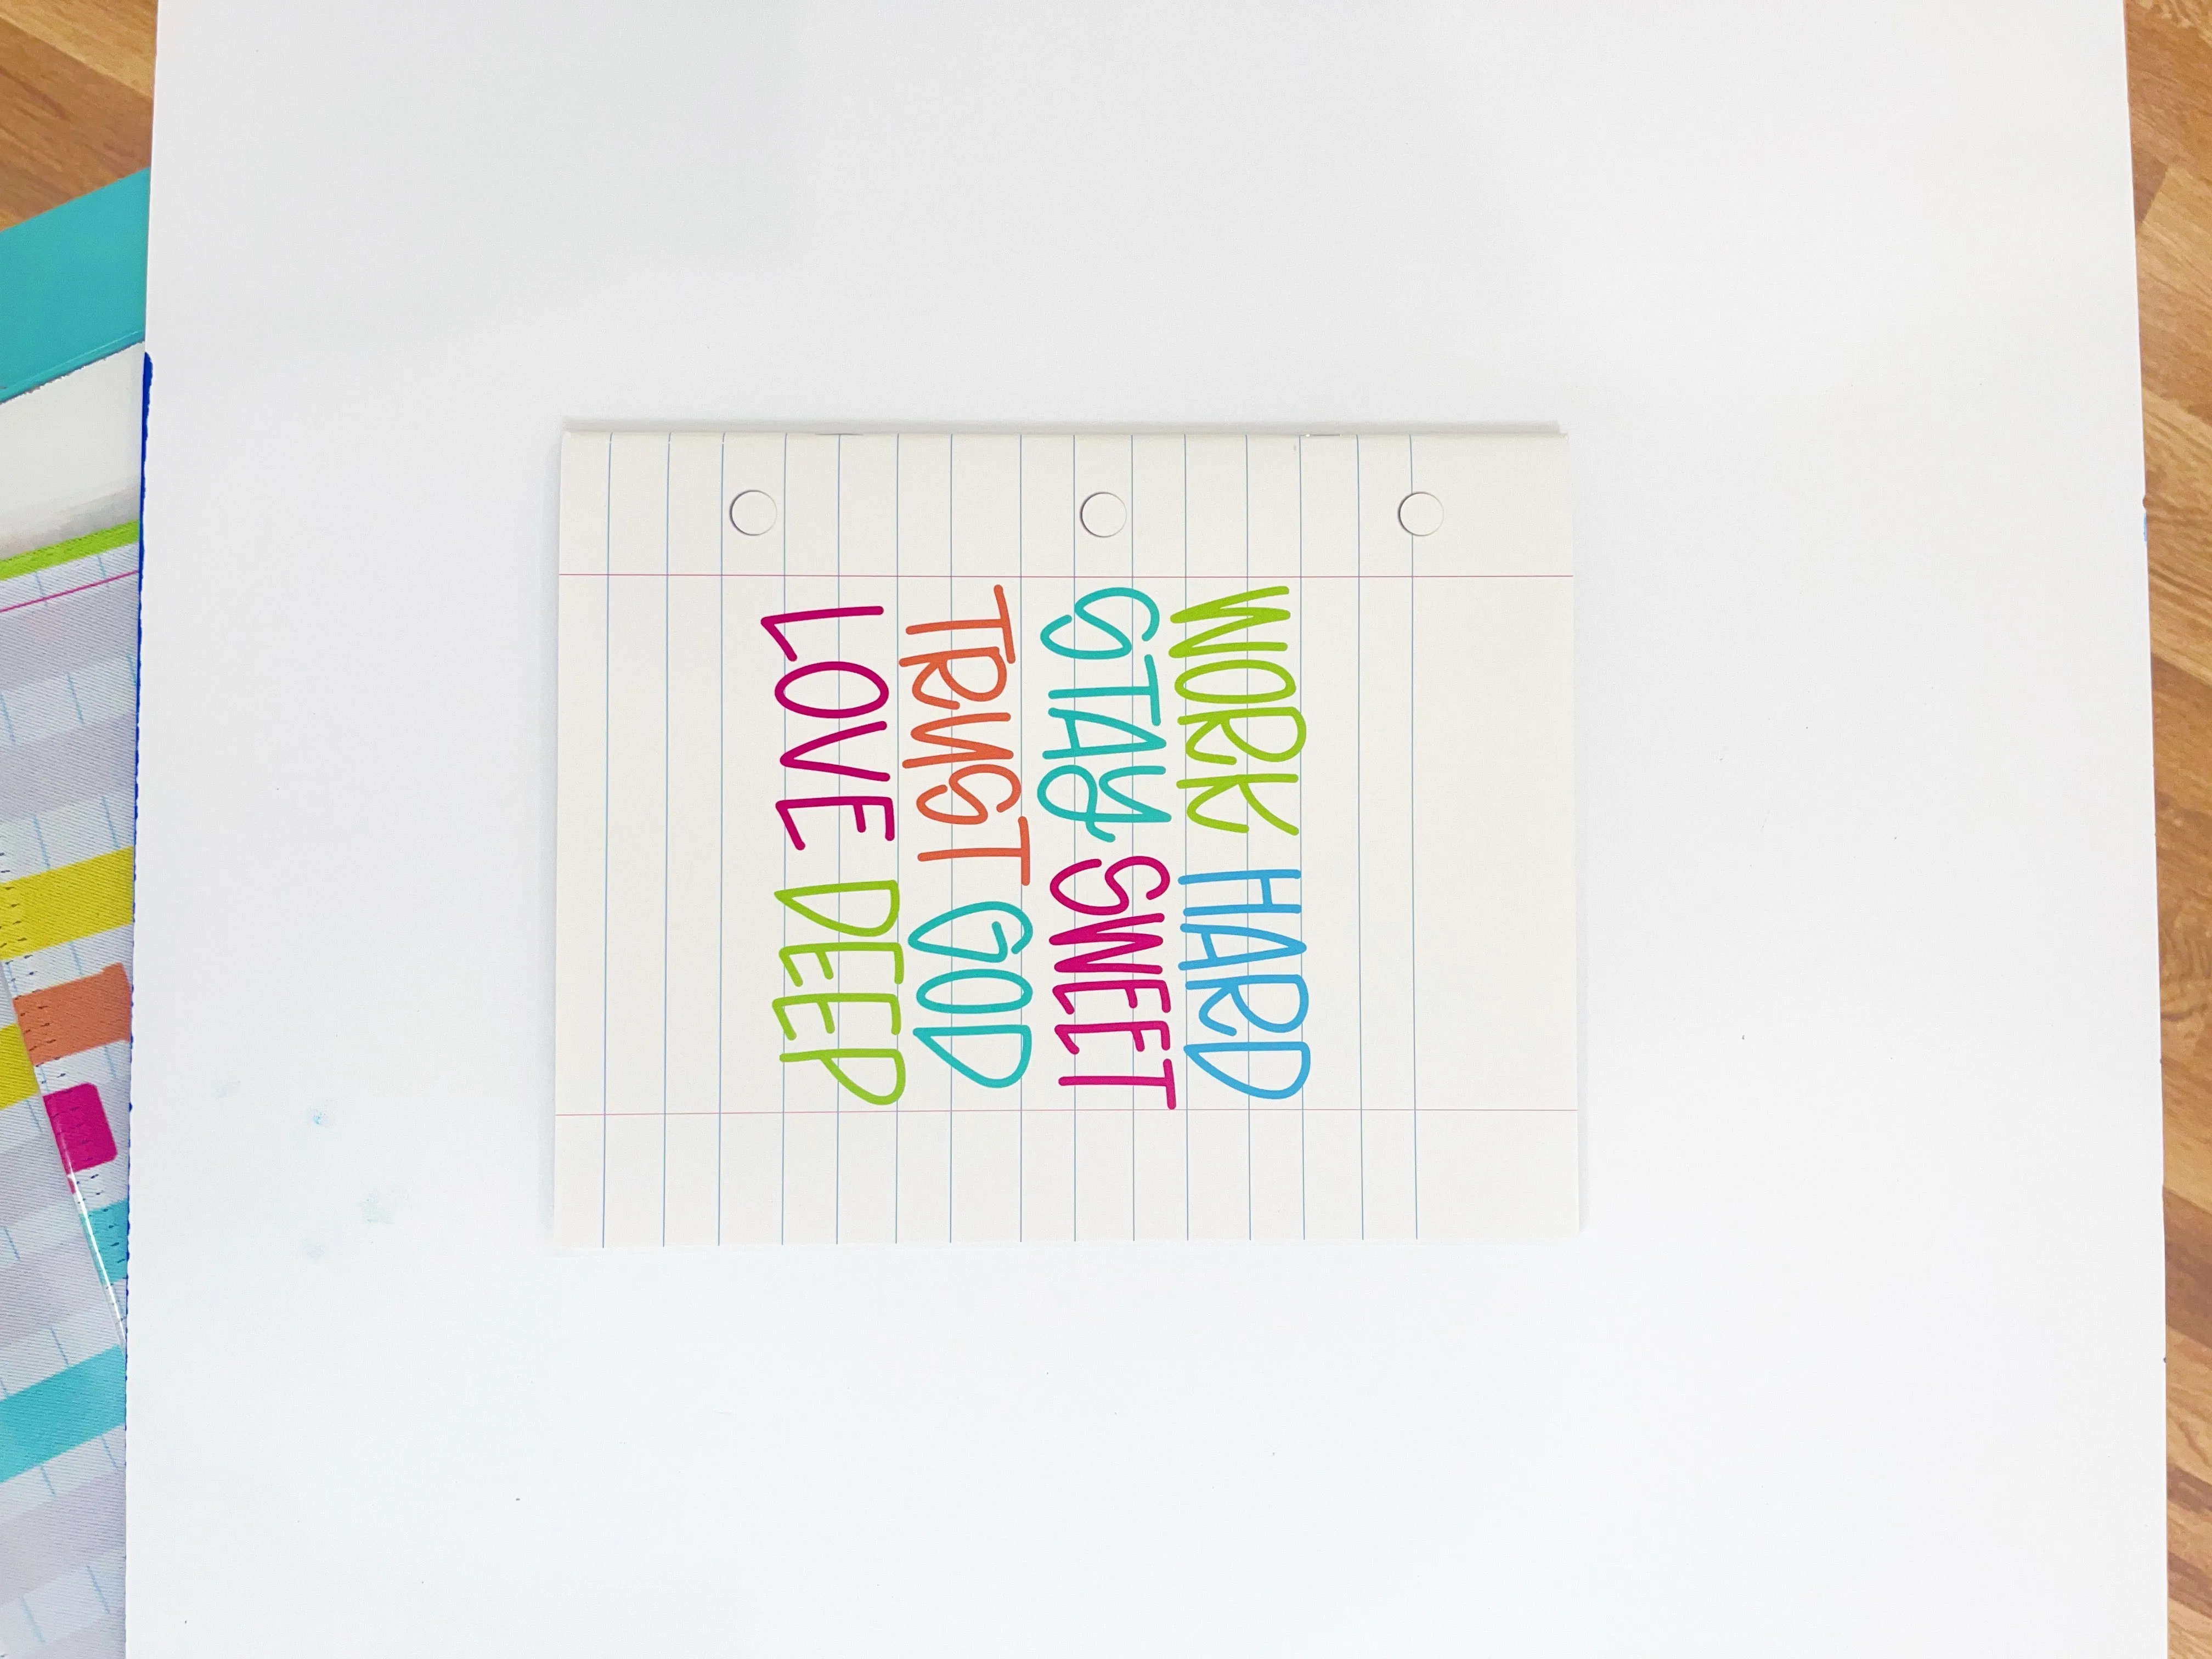 WORK HARD
STAY SWEET
TRUST GOD
LOVE DEEP